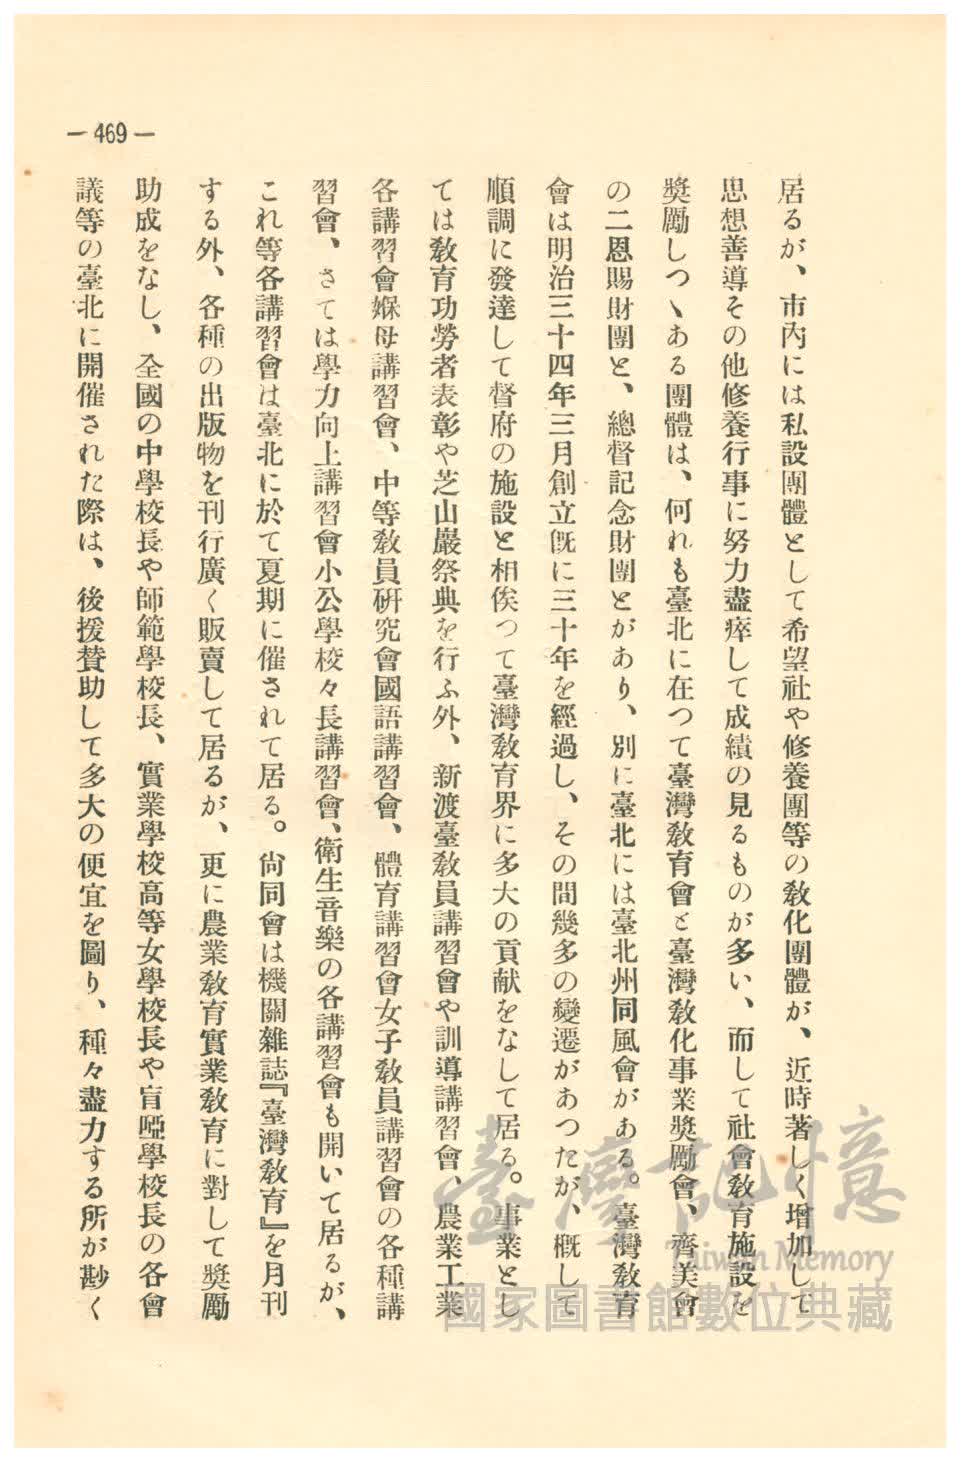 — 469 —
居るが、市內には私設團體として希望社や修養團等の敎化團體が、近時著しく增加して
思想善導その他修養行事に努力盡瘁して成績の見るものが多い、而して社會敎育施設を
奬勵しつヽある團體は、何れも臺北に在つて臺灣敎育會と臺灣敎化事業奬勵會、齊美會
の二恩賜財團と、總督記念財團とがあり、別に臺北には臺北州同風會がある。臺灣敎育
會は明治三十四年三月創立旣に三十年を經過し、その間幾多の變遷があつたが、槪して
順調に發達して督府の施設と相俟つて臺灣敎育界に多大の貢献をなして居る。事業とし
ては敎育功勞者表彰や芝山巖祭典を行ふ外、新渡臺敎員講習會や訓導講習會、農業工業
各講習會媬母講習會、中等敎員硏究會國語講習會、體育講習會女子敎員講習會の各種講
習會、さては學力向上講習會小公學校々長講習會、衛生音樂の各講習會も開いて居るが、
これ等各講習會は臺北に於て夏期に催されて居る。尙同會は機關雜誌『臺灣敎育』を月刊
する外、各種の出版物を刊行廣く販賣して居るが、更に農業敎育實業敎育に對して奬勵
助成をなし、全國の中學校長や師範學校長、實業學校高等女學校長や盲啞學校長の各會
議等の臺北に開催された際は、後援賛助して多大の便宜を圖り、種々盡力する所が尠く
臺灣記憶
Taiwan Memory
國家圖書館數位典藏